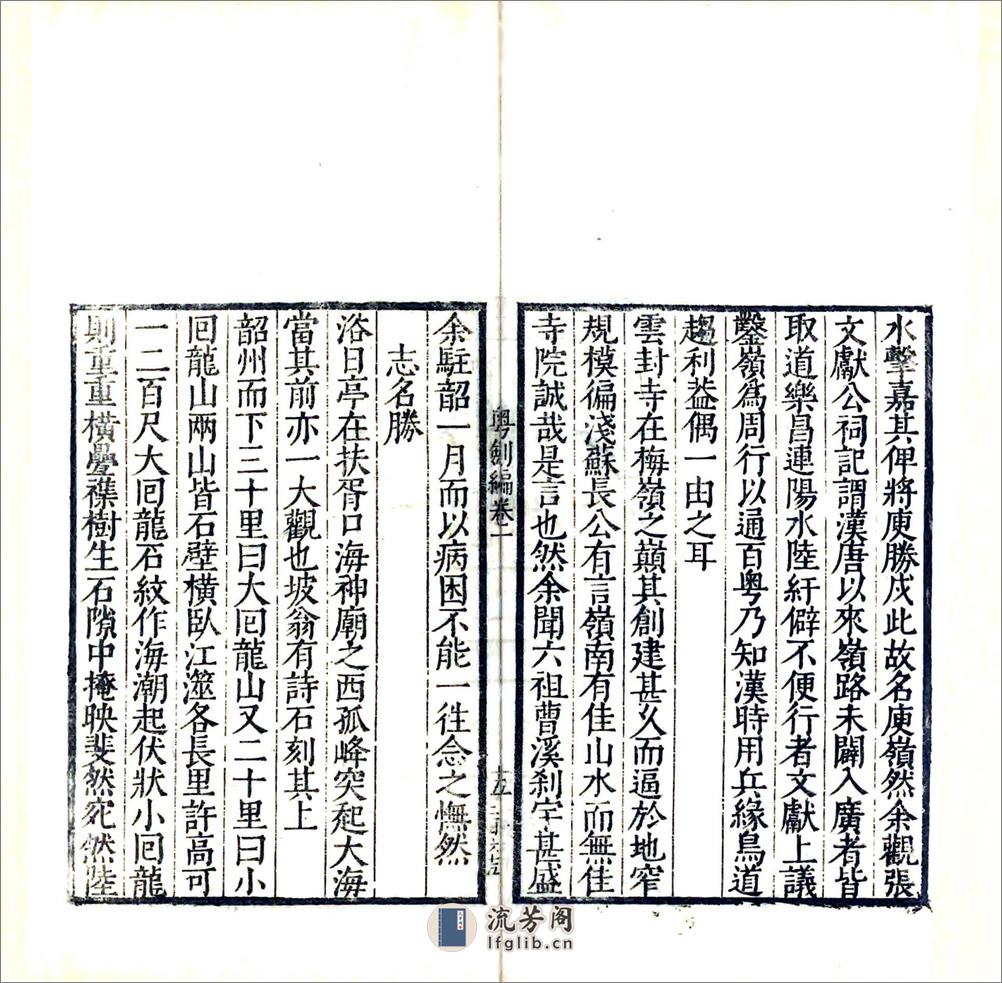 水擊嘉其俾將庾勝戍此故名庾嶺然余觀張
文獻公祠記謂漢唐以來嶺路未闢入廣者皆
取道樂昌連陽水陸紆僻不便行者文獻上議
鑿嶺為周行以通百粵乃知漢時用兵緣鳥道
趨利葢偶一由之耳
雲封寺在梅嶺之巔其創建甚乆而逼於地窄
規模偏淺蘇長公有言嶺南有佳山水而無佳
寺院誠哉是言也然余聞六祖曹溪刹宇甚盛
粵劍編卷一
十五
余駐韶一月而以病困不能一往念之憮然
志名勝
浴日亭在扶胥口海神廟之西孤峰突起大海
當其前亦一大觀也坡翁有詩石刻其上
韶州而下三十里曰大囘龍山又二十里曰小
囘龍山兩山皆石壁橫臥江澨各長里許高可
一二百尺大囘龍石紋作海潮起伏狀小囘龍
則重重橫疊襍樹生石隙中掩映斐然宛然陸
流芳阁
lfglib.cn